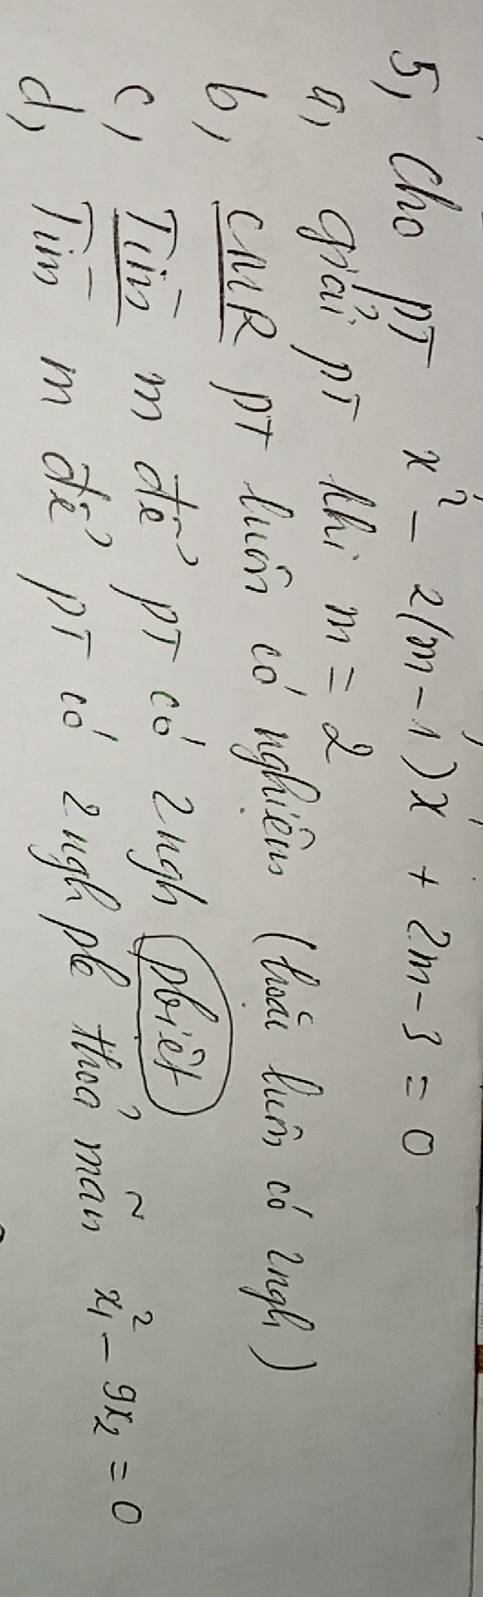 5, Cho PT x² - 2(m-1)x + 2m-3 = 0
a, giải pT khi m = 2
b, CMR pT luôn có nghiệm (hoặc luôn có 2ngh)
c, Tìm m để pT có 2ngh pbiệt
d, Tìm m để pT có 2ngh pb thoả mãn x₁² - 9x₂ = 0